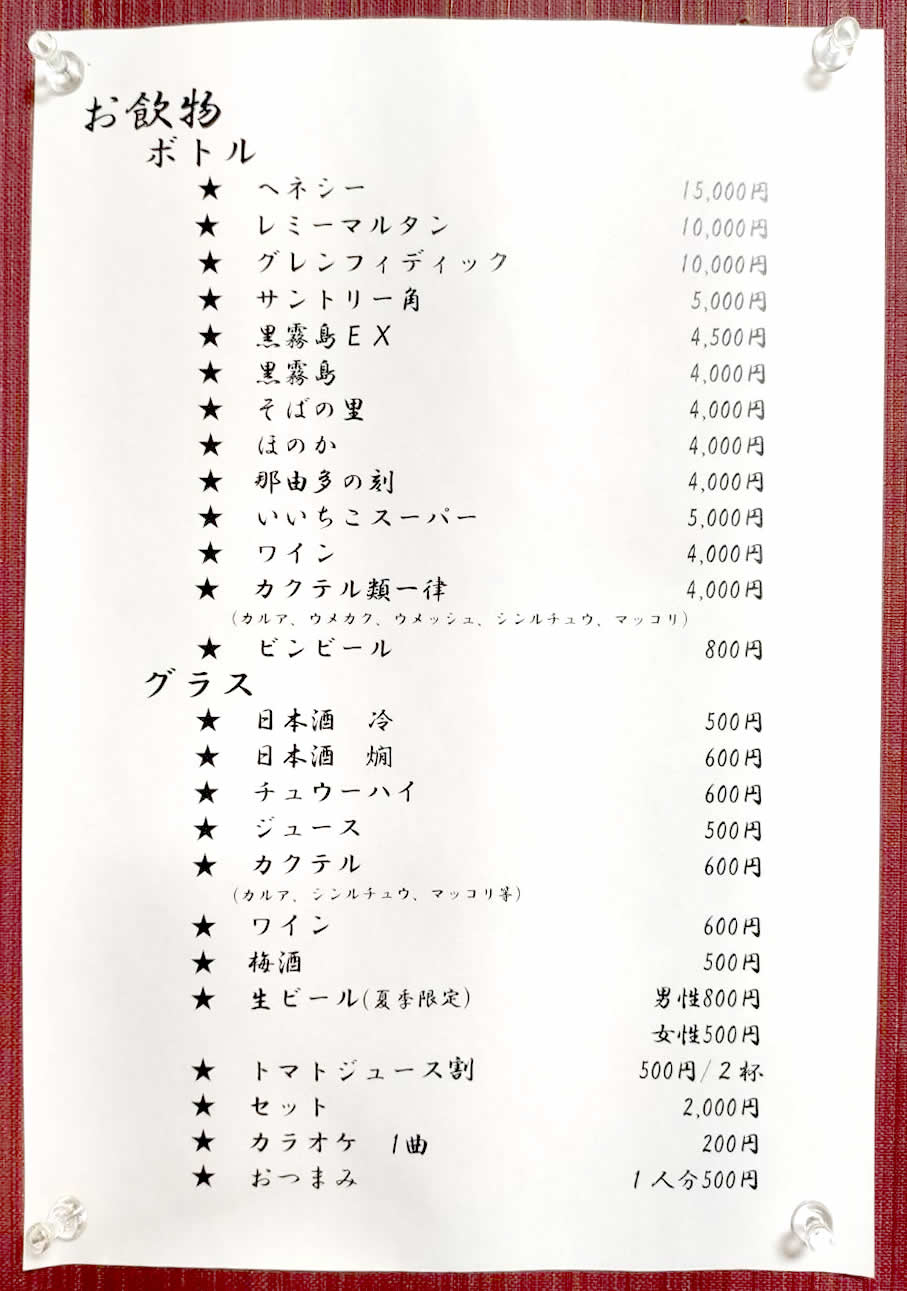 お飲物
ボトル
★ ヘネシー 15,000円
★ レミーマルタン 10,000円
★ グレンフィディック 10,000円
★ サントリー角 5,000円
★ 黒霧島EX 4,500円
★ 黒霧島 4,000円
★ そばの里 4,000円
★ ほのか 4,000円
★ 那由多の刻 4,000円
★ いいちこスーパー 5,000円
★ ワイン 4,000円
★ カクテル類一律 4,000円
(カルア、ウメカク、ウメッシュ、シンルチュウ、マッコリ)
★ ビンビール 800円
グラス
★ 日本酒 冷 500円
★ 日本酒 燗 600円
★ チュウーハイ 600円
★ ジュース 500円
★ カクテル 600円
(カルア、シンルチュウ、マッコリ等)
★ ワイン 600円
★ 梅酒 500円
★ 生ビール(夏季限定) 男性800円
女性500円
★ トマトジュース割 500円/2杯
★ セット 2,000円
★ カラオケ 1曲 200円
★ おつまみ 1人分500円